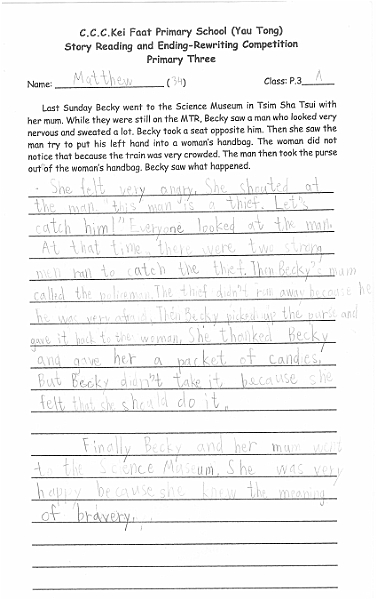 C.C.C.Kei Faat Primary School (Yau Tong)
Story Reading and Ending-Rewriting Competition
Primary Three
Name: Matthew (34) Class: P.3 A
Last Sunday Becky went to the Science Museum in Tsim Sha Tsui with
her mum. While they were still on the MTR, Becky saw a man who looked very
nervous and sweated a lot. Becky took a seat opposite him. Then she saw the
man try to put his left hand into a woman's handbag. The woman did not
notice that because the train was very crowded. The man then took the purse
out of the woman's handbag. Becky saw what happened.
She felt very angry. She shouted at
the man "this man is a thief. Let's
catch him!" Everyone looked at the man.
At that time, there were two strong
men ran to catch the thief. Then Becky's mum
called the policeman. The thief didn't run away because he
he was very afraid. Then Becky picked up the purse and
gave it back to the woman. She thanked Becky
and gave her a packet of candies.
But Becky didn't take it because she
felt that she should do it.
Finally Becky and her mum went
to the Science Museum. She was very
happy because she knew the meaning
of bravery.